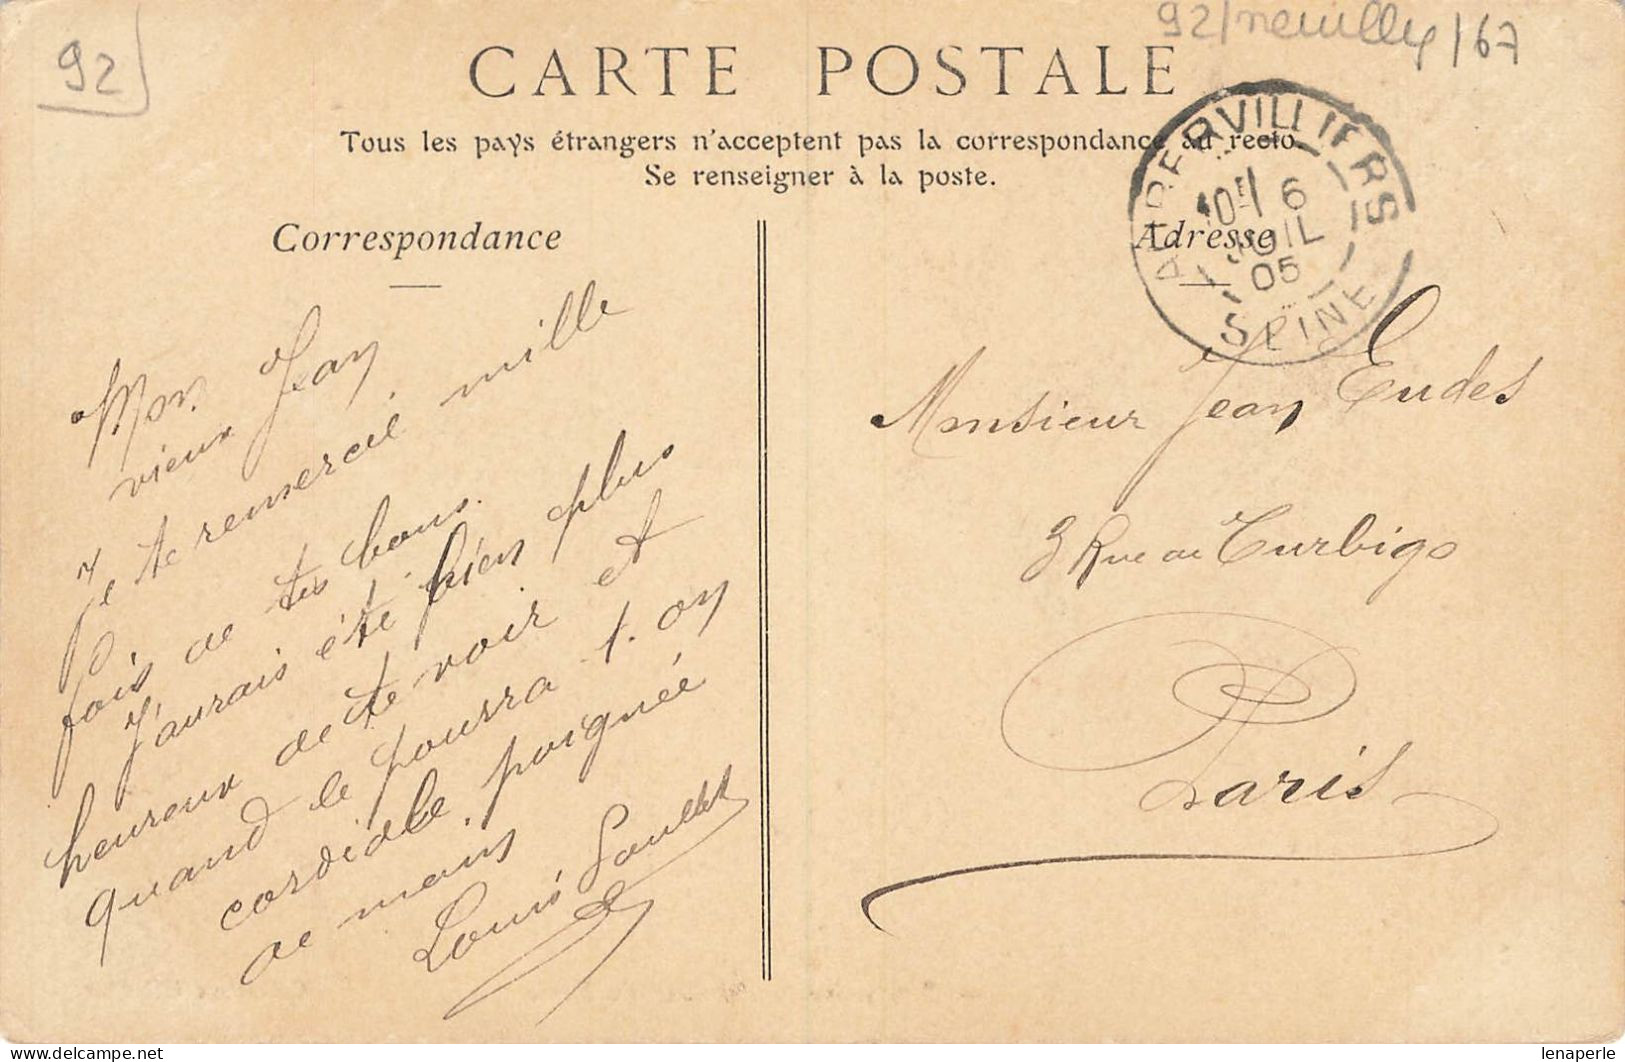 92
92/neuilly/67
CARTE POSTALE
Tous les pays étrangers n'acceptent pas la correspondance au recto.
Se renseigner à la poste.
Correspondance
Mon
vieux Jean
Je te remercie mille
fois de tes bons.
J'aurais été bien plus
heureux de te voir et
quand le pourra t. on
cordiale poignée
de mains
Louis
Adresse
AUBERVILLIERS
6
JUIL
05
SEINE
Monsieur Jean Eudes
3 Rue de Turbigo
Paris
delcampe.net
lenaperle